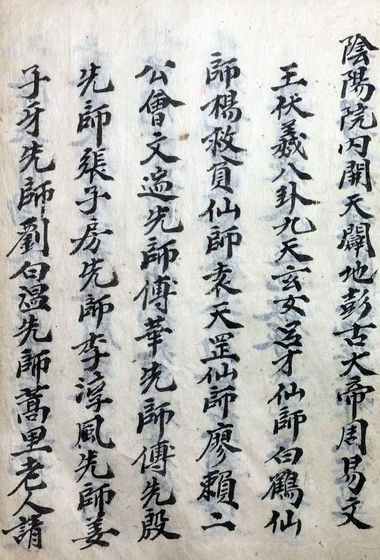 陰陽院内開天闢地彭古大帝周易文
王伏羲八卦九天玄女吕才仙師白鶴仙
師楊救貧仙師袁天罡仙師廖賴二
公曾文遄先師傅華先師傅先殷
先師張子房先師李淳風先師姜
子牙先師劉白温先師蒿里老人請